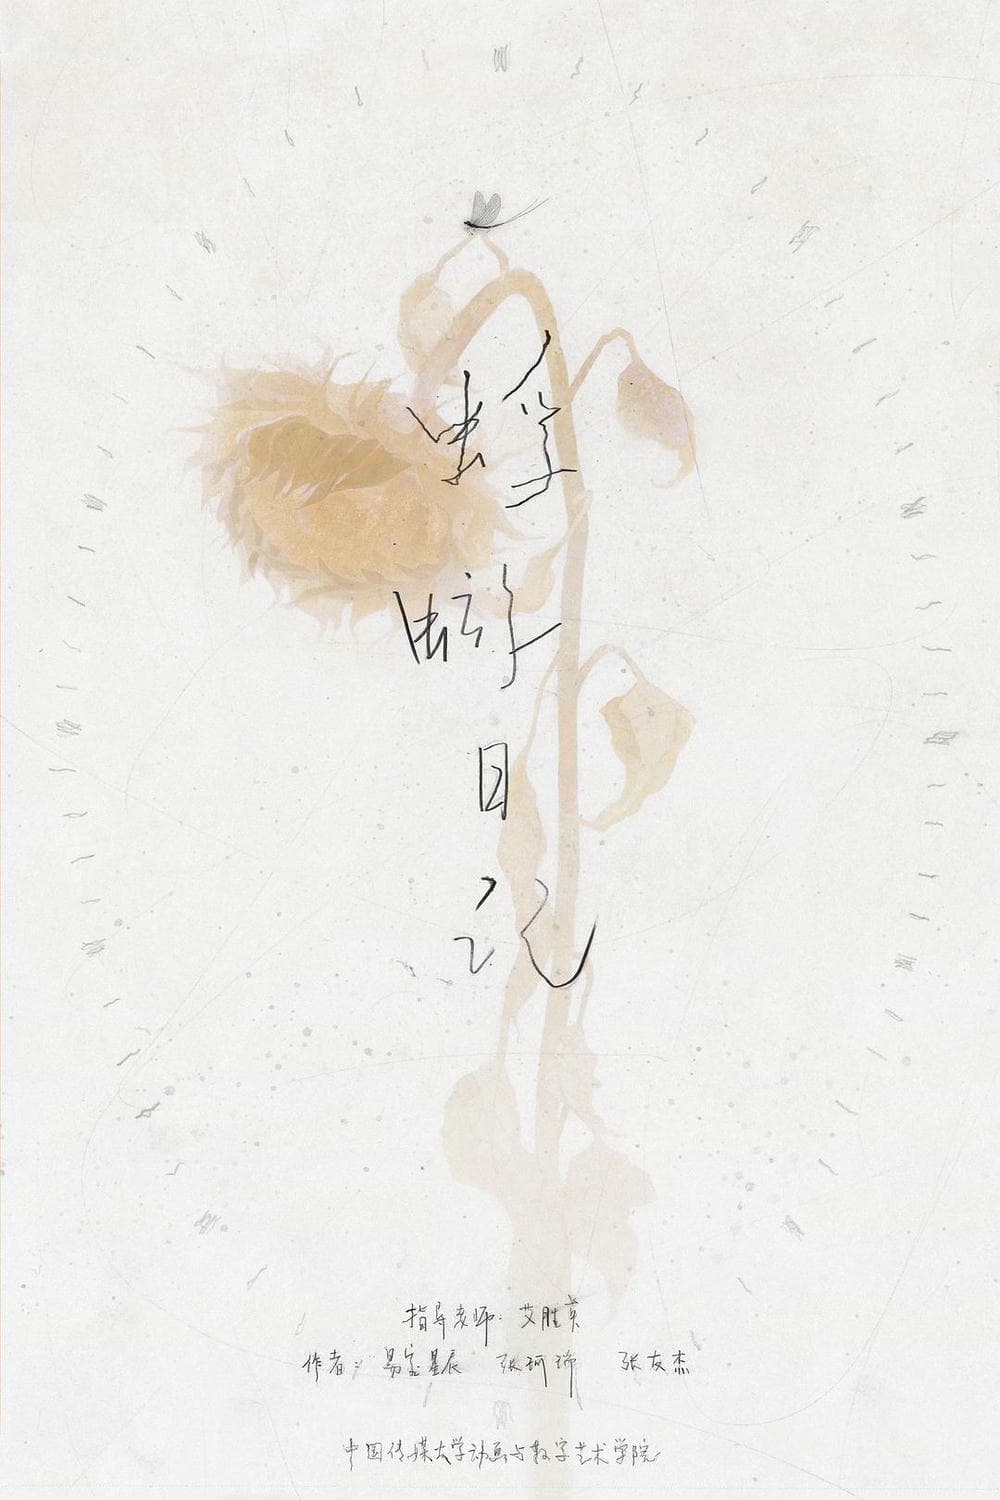 蜉
蝣
日
记
指导老师：艾胜英
作者：易宝星辰 张珂瑞 张友杰
中国传媒大学动画与数字艺术学院